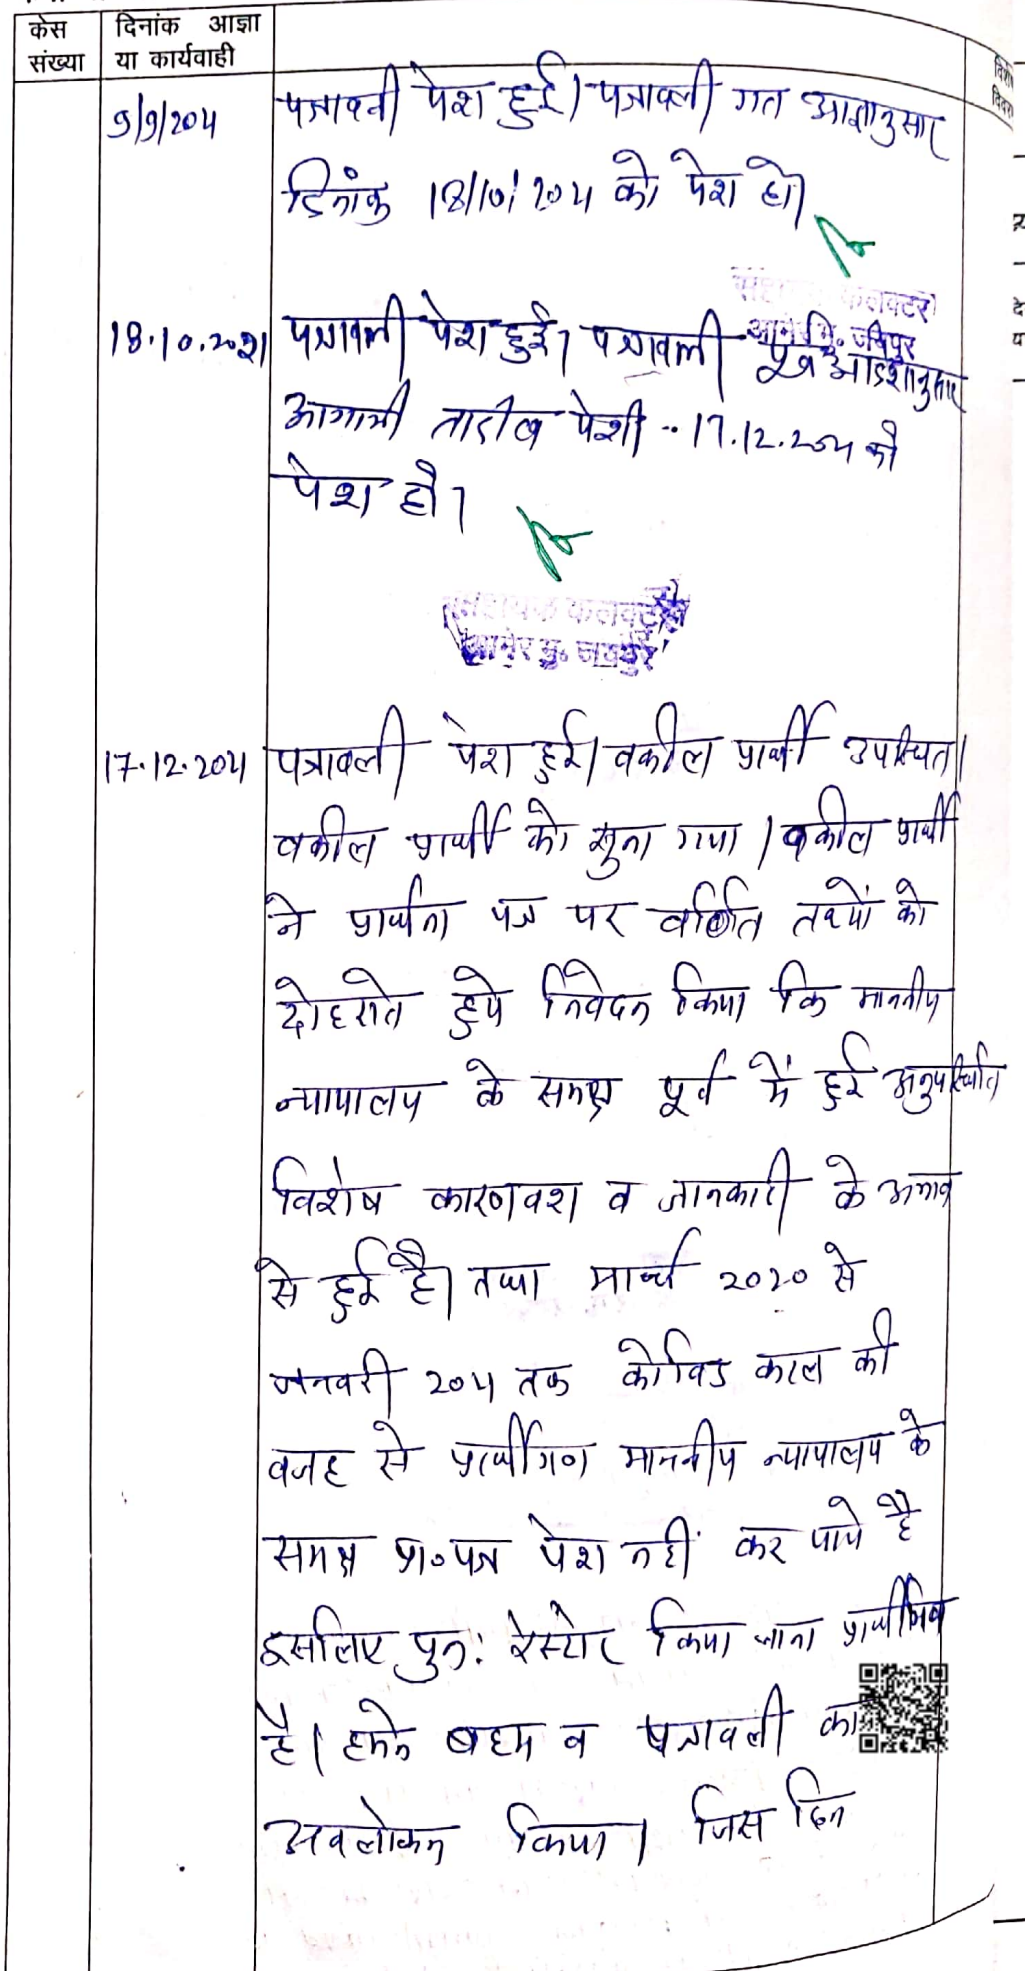 केस संख्या
दिनांक आज्ञा या कार्यवाही
9/9/2021
पत्रावली पेश हुई। पत्रावली गत आज्ञानुसार
दिनांक 18/10/2021 को पेश हो।
18.10.2021
पत्रावली पेश हुई। पत्रावली पूर्व आदेशानुसार
आगामी तारीख पेशी - 17.12.2021 को
पेश हो।
सहायक कलक्टर
आमेर मु. जयपुर
17.12.2021
पत्रावली पेश हुई। वकील प्रार्थी उपस्थित।
वकील प्रार्थी को सुना गया। वकील प्रार्थी
ने प्रार्थना पत्र पर वर्णित तथ्यों को
दोहराते हुये निवेदन किया कि माननीय
न्यायालय के समक्ष पूर्व में हुई अनुपस्थिति
विशेष कारणवश व जानकारी के अभाव
से हुई है। तथा मार्च 2020 से
जनवरी 2021 तक कोविड काल की
वजह से प्रार्थीगण माननीय न्यायालय के
समक्ष प्रा॰पत्र पेश नहीं कर पाये है
इसलिए पुन: रेस्टोर किया जाना
है। हमने बहस व पत्रावली का
अवलोकन किया। जिस दिन